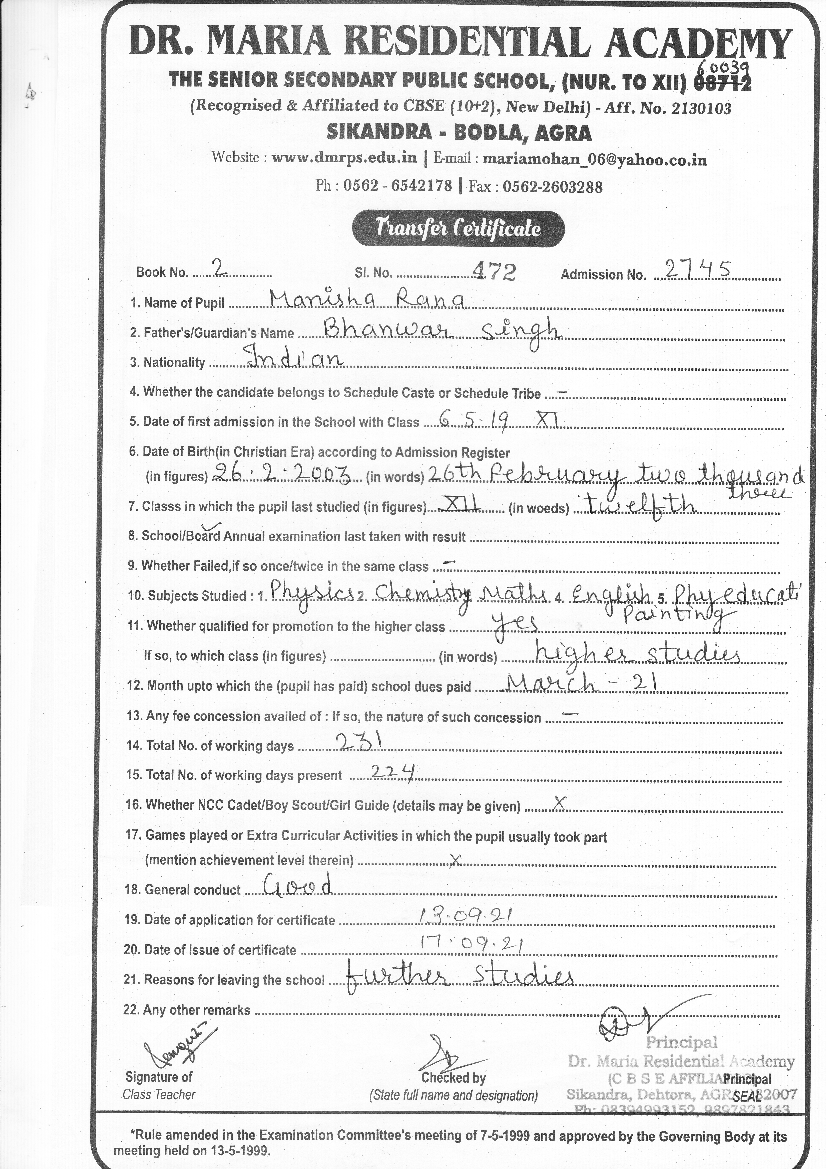 DR. MARIA RESIDENTIAL ACADEMY
60039
THE SENIOR SECONDARY PUBLIC SCHOOL, (NUR. TO XII) 08712
(Recognised & Affiliated to CBSE (10+2), New Delhi) - Aff. No. 2130103
SIKANDRA - BODLA, AGRA
Website : www.dmrps.edu.in | E-mail : mariamohan_06@yahoo.co.in
Ph : 0562 - 6542178 | Fax : 0562-2603288
Transfer Certificate
Book No. 2 Sl. No. 472 Admission No. 2745
1. Name of Pupil Manisha Rana
2. Father's/Guardian's Name Bhanwar Singh
3. Nationality Indian
4. Whether the candidate belongs to Schedule Caste or Schedule Tribe –
5. Date of first admission in the School with Class 6.5.19 XI
6. Date of Birth(in Christian Era) according to Admission Register
(in figures) 26.2.2003 (in words) 26th February two thousand
three
7. Classs in which the pupil last studied (in figures) XII (in woeds) twelfth
8. School/Board Annual examination last taken with result
9. Whether Failed,if so once/twice in the same class –
10. Subjects Studied : 1. Physics 2. Chemistry Maths 4. English 5. Phy educati
Painting
11. Whether qualified for promotion to the higher class yes
If so, to which class (in figures) (in words) higher studies
12. Month upto which the (pupil has paid) school dues paid March - 21
13. Any fee concession availed of : If so, the nature of such concession –
14. Total No. of working days 231
15. Total No. of working days present 224
16. Whether NCC Cadet/Boy Scout/Girl Guide (details may be given) X
17. Games played or Extra Curricular Activities in which the pupil usually took part
(mention achievement level therein) X
18. General conduct Good
19. Date of application for certificate 13.09.21
20. Date of Issue of certificate 17.09.21
21. Reasons for leaving the school further studies
22. Any other remarks
Principal
Dr. Maria Residential Academy
Signature of Checked by (C B S E AFFILIA Principal
Class Teacher (State full name and designation) Sikandra, Dehtora, AGR SEAL 82007
Ph: 08394993152, 9897821843
*Rule amended in the Examination Committee's meeting of 7-5-1999 and approved by the Governing Body at its
meeting held on 13-5-1999.